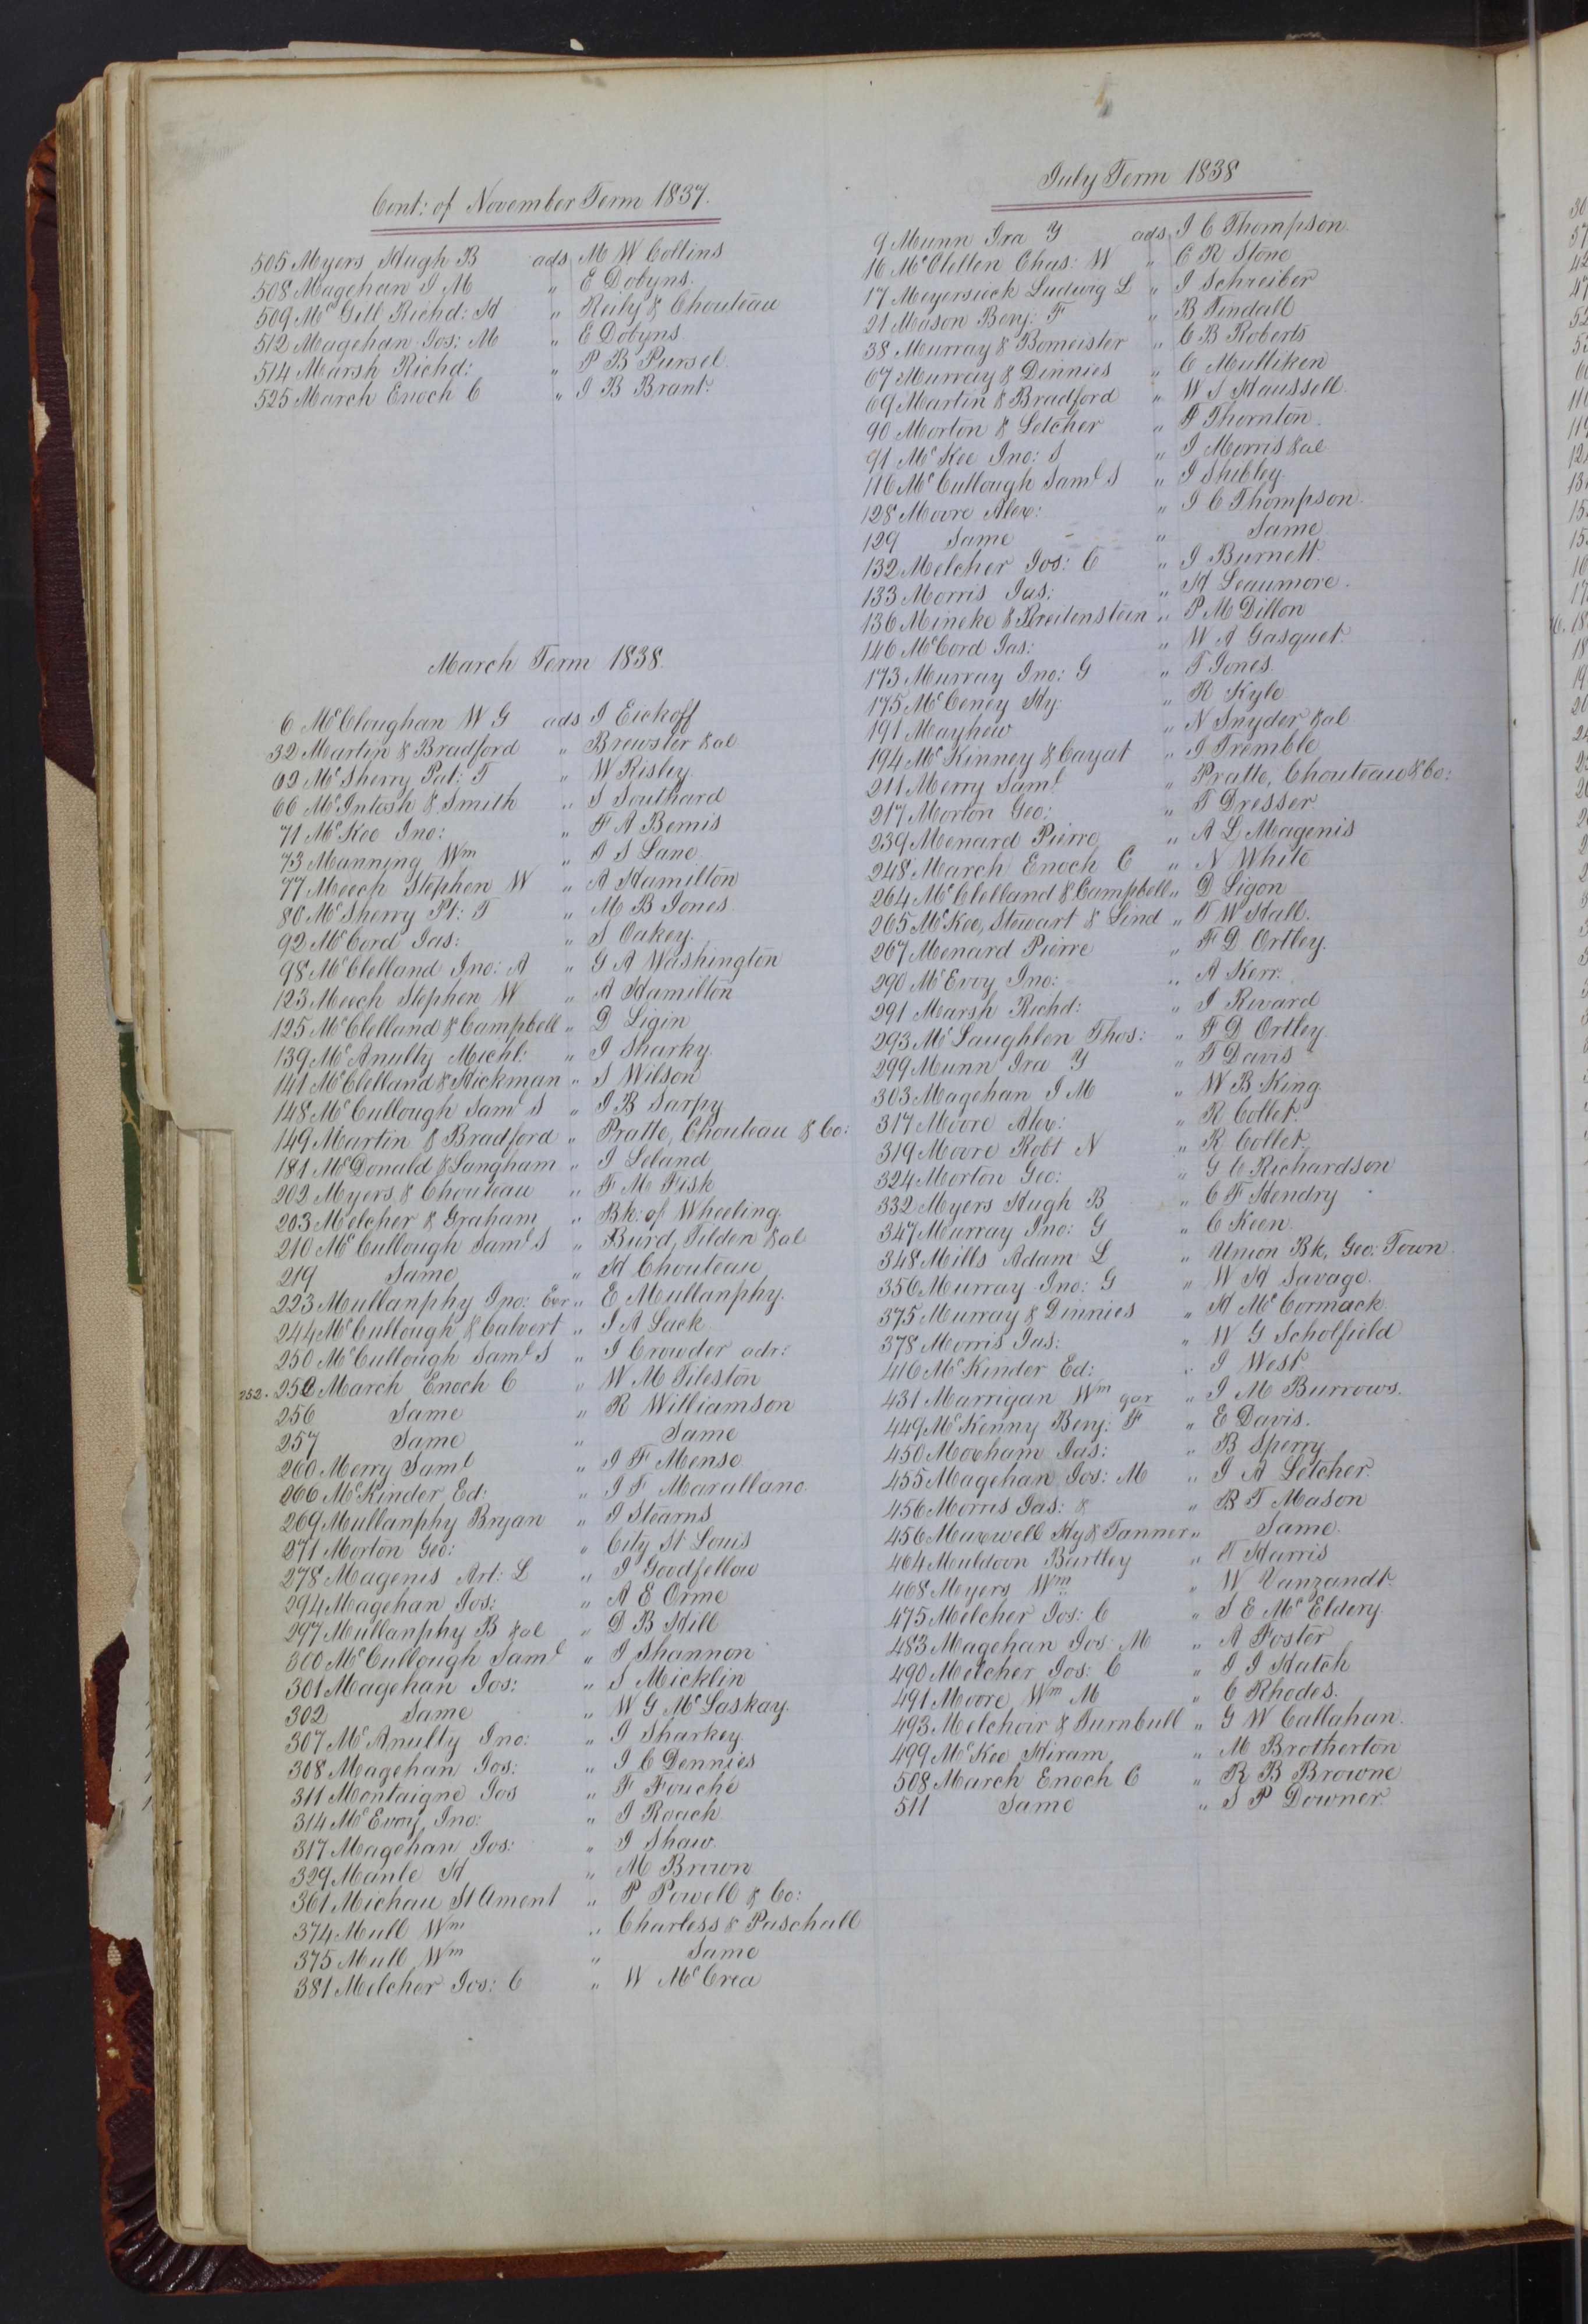 Cont: of November Term 1837.
505 Myers Hugh B ads M W Collins
508 Magehan J M " E Dobyns.
509 McGill Richd: H " Reily & Chouteau
512 Magehan Jos: M " E Dobyns
514 Marsh Richd: " P B Pursel
525 March Enoch C " J B Brant.
March Term 1838.
6 McCloughan W G ads J Eickoff
32 Martin & Bradford " Brewster & al
62 McSherry Pat: T " W Risley.
66 McIntosh & Smith " S Southard
71 McKee Jno: " F A Bemis
73 Manning Wm " J S Lane
77 Meech Stephen W " A Hamilton
80 McSherry Pt: T " M B Jones
92 McCord Jas: " S Oakey.
98 McClelland Jno: A " G A Washington
123 Meech Stephen W " A Hamilton
125 McClelland & Campbell " D Ligin
139 McAnulty Michl: " J Sharky.
141 McClelland & Hickman " S Wilson
148 McCullough Saml S " J B Sarpy
149 Martin & Bradford " Pratte, Chouteau & Co:
181 McDonald & Langham " J Leland
202 Myers & Chouteau " F M Fisk
203 Melcher & Graham " Bk: of Wheeling.
210 McCullough Saml S " Burd, Tilden & al
219 Same " H Chouteau
223 Mullanphy Jno: Exr " E Mullanphy.
244 McCullough & Calvert " J A Lack
250 McCullough Saml S " J Crowder adr:
252. 252 March Enoch C " W M Tileston
256 Same " R Williamson
257 Same " Same
260 Merry Saml " J F Mense
266 McKinder Ed: " J F Marallano.
269 Mullanphy Bryan " J Stearns
271 Morton Geo: " City St Louis
278 Magenis Art: L " J Goodfellow
294 Magehan Jos: " A E Orme
297 Mullanphy B & al " D B Hill
300 McCullough Saml " J Shannon
301 Magehan Jos: " S Micklin
302 Same " W G McLaskay.
307 McAnulty Jno: " J Sharkey.
308 Magehan Jos: " J C Dennies
311 Montaigne Jos " F Fouché
314 McEvoy, Jno: " J Roach
317 Magehan Jos: " J Shaw.
329 Manle H " M Brown
361 Michau St Ament " P Powell & Co:
374 Mull Wm " Charless & Paschall
375 Mull Wm " Same
381 Melcher Jos: C " W McCrea
July Term 1838
9 Munn Ira Y ads J C Thompson.
16 McClellen Chas: W " C R Stone
17 Meyersieck Ludwig L " J Schreiber
21 Mason Benj: F " B Tindall
38 Murray & Bomeister " C B Roberts
67 Murray & Dinnies " C Mulliken
69 Martin & Bradford " W S Haussell.
90 Morton & Letcher " F Thornton.
91 McKee Jno: S " J Morris & al
116 McCullough Saml S " J Shibley
128 Moore Alex: " J C Thompson.
129 Same " Same
132 Melcher Jos: C " J Burnett.
133 Morris Jas: " H Leaumore.
136 Mineke & Breitenstein " P M Dillon
146 McCord Jas: " W A Gasquet.
173 Murray Jno: G " T Jones.
175 McCeney Hy: " R Kyle
191 Mayhew " N Snyder & al
194 McKinney & Cayat " J Tremble
211 Merry Saml " Pratte, Chouteau & Co:
217 Morton Geo: " T Dresser
239 Menard Pierre " A L Magenis
248 March Enoch C " N White
264 McClelland & Campbell " D Ligon
265 McKee, Stewart & Lind " T W Hall.
267 Menard Pierre " F D Ortley.
290 McEvoy Jno: " A Kerr.
291 Marsh Richd: " J Rivard
293 McLaughlen Thos: " F D Ortley
299 Munn Ira Y " T Davis
303 Magehan J M " W B King.
317 Moore Alex: " R Collet.
319 Moore Robt N " R Collet,
324 Morton Geo: " G C Richardson
332 Myers Hugh B " C F Hendry
347 Murray Jno: G " C Keen.
348 Mills Adam L " Union Bk, Geo: Town
356 Murray Jno: G " W H Savage.
375 Murray & Dinnies " H McCormack
378 Morris Jas: " W G Scholfield
416 McKinder Ed: " J West
431 Marrigan Wm gar " J M Burrows.
449 McKenny Benj: F " E Davis.
450 Moxham Jas: " B Sperry
455 Magehan Jos: M " J A Letcher.
456 Morris Jas: & " R T Mason
456 Maxwell Hy & Tanner " Same.
464 Muldoon Bartley " T Harris
468 Myers Wm " W Vanzandt.
475 Melcher Jos: C " S E McEldery
483 Magehan Jos: M " A Foster
490 Melcher Jos: C " J J Hatch
491 Moore Wm M " C Rhodes.
493 Melchoir & Turnbull " G W Callahan.
499 McKee Hiram " M Brotherton
508 March Enoch C " R B Browne
511 Same " S P Downer.